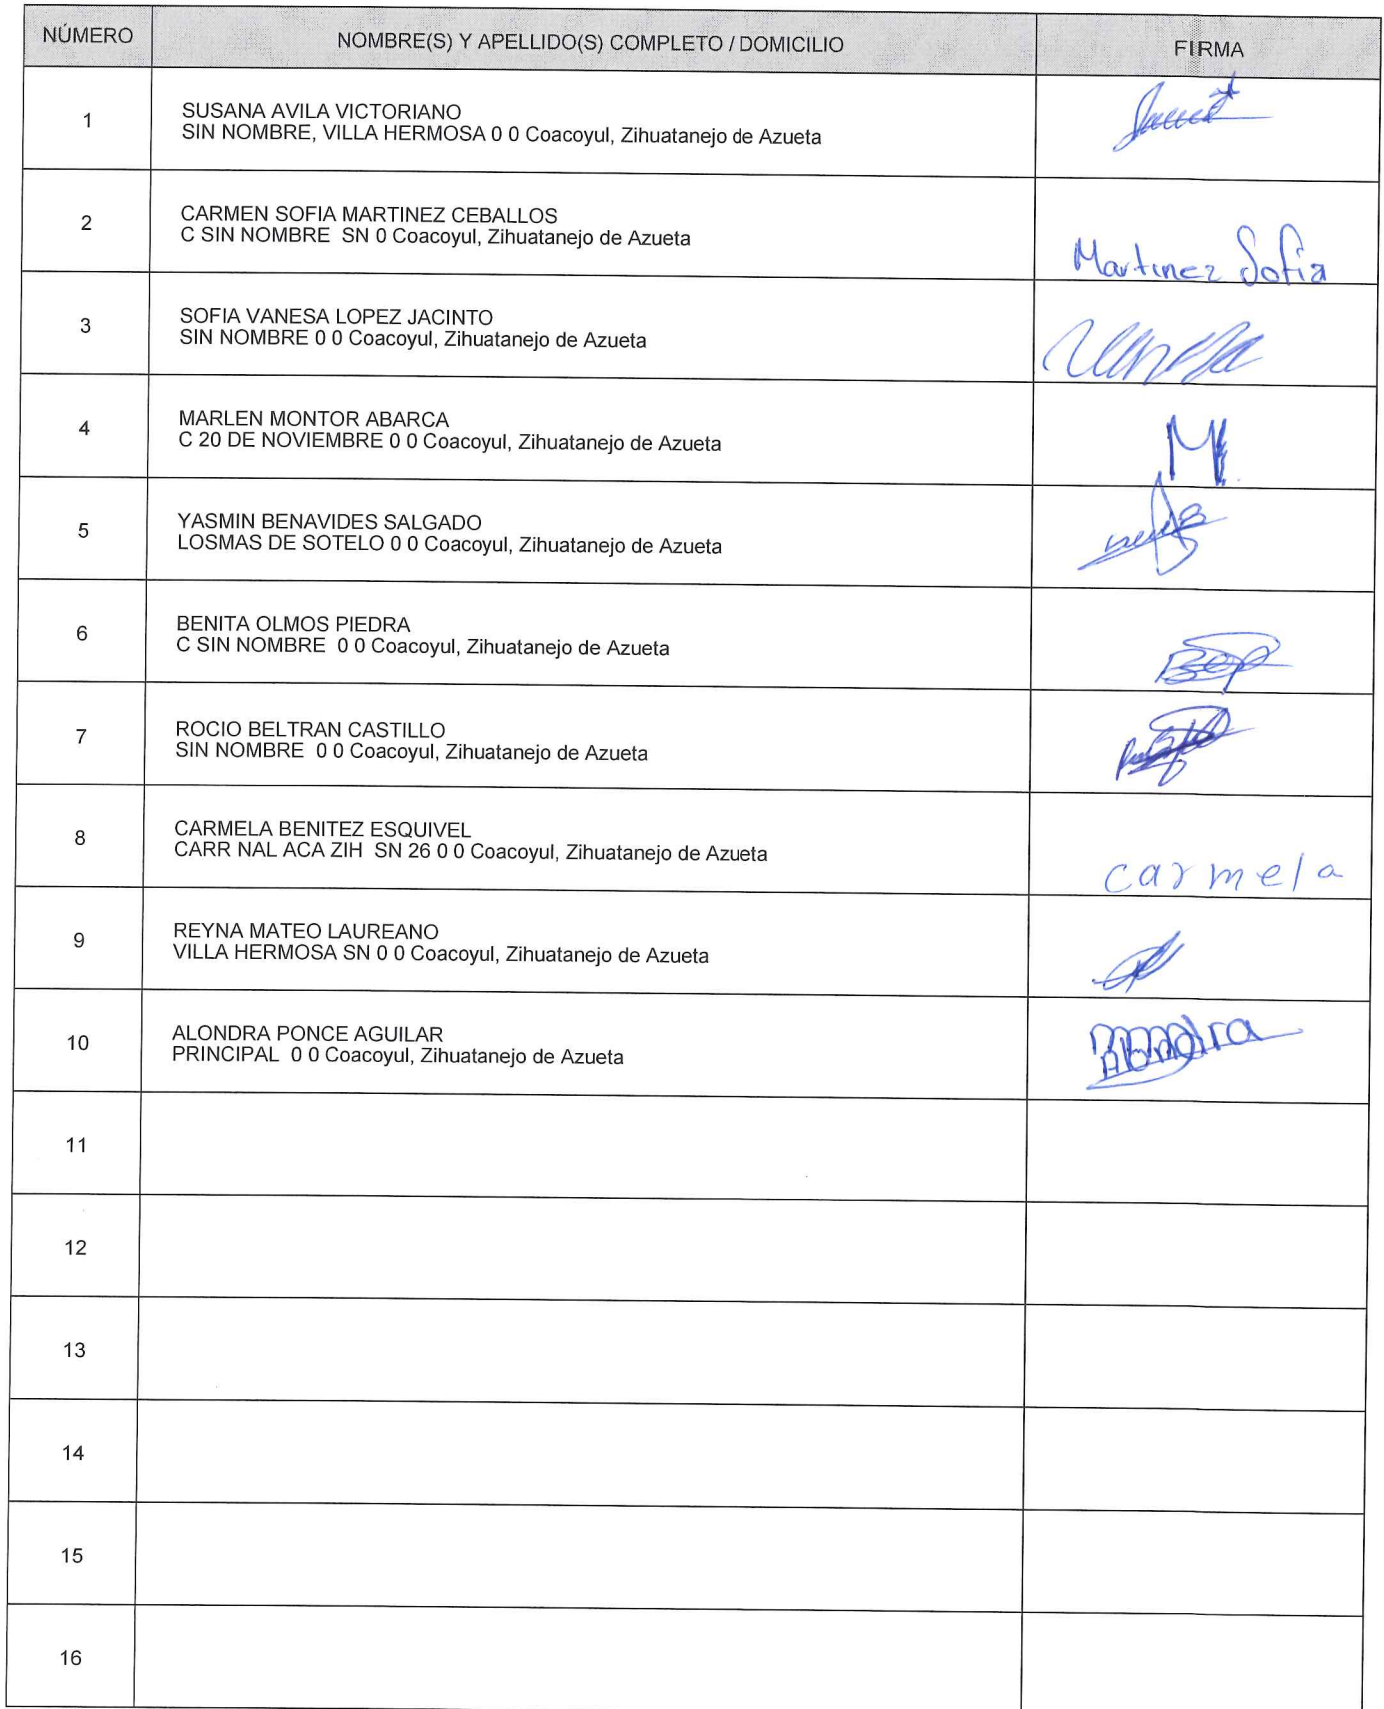 NÚMERO NOMBRE(S) Y APELLIDO(S) COMPLETO / DOMICILIO FIRMA
1 SUSANA AVILA VICTORIANO
SIN NOMBRE, VILLA HERMOSA 0 0 Coacoyul, Zihuatanejo de Azueta
2 CARMEN SOFIA MARTINEZ CEBALLOS
C SIN NOMBRE SN 0 Coacoyul, Zihuatanejo de Azueta
Martinez Sofia
3 SOFIA VANESA LOPEZ JACINTO
SIN NOMBRE 0 0 Coacoyul, Zihuatanejo de Azueta
4 MARLEN MONTOR ABARCA
C 20 DE NOVIEMBRE 0 0 Coacoyul, Zihuatanejo de Azueta
5 YASMIN BENAVIDES SALGADO
LOSMAS DE SOTELO 0 0 Coacoyul, Zihuatanejo de Azueta
6 BENITA OLMOS PIEDRA
C SIN NOMBRE 0 0 Coacoyul, Zihuatanejo de Azueta
7 ROCIO BELTRAN CASTILLO
SIN NOMBRE 0 0 Coacoyul, Zihuatanejo de Azueta
8 CARMELA BENITEZ ESQUIVEL
CARR NAL ACA ZIH SN 26 0 0 Coacoyul, Zihuatanejo de Azueta
carmela
9 REYNA MATEO LAUREANO
VILLA HERMOSA SN 0 0 Coacoyul, Zihuatanejo de Azueta
10 ALONDRA PONCE AGUILAR
PRINCIPAL 0 0 Coacoyul, Zihuatanejo de Azueta
11
12
13
14
15
16